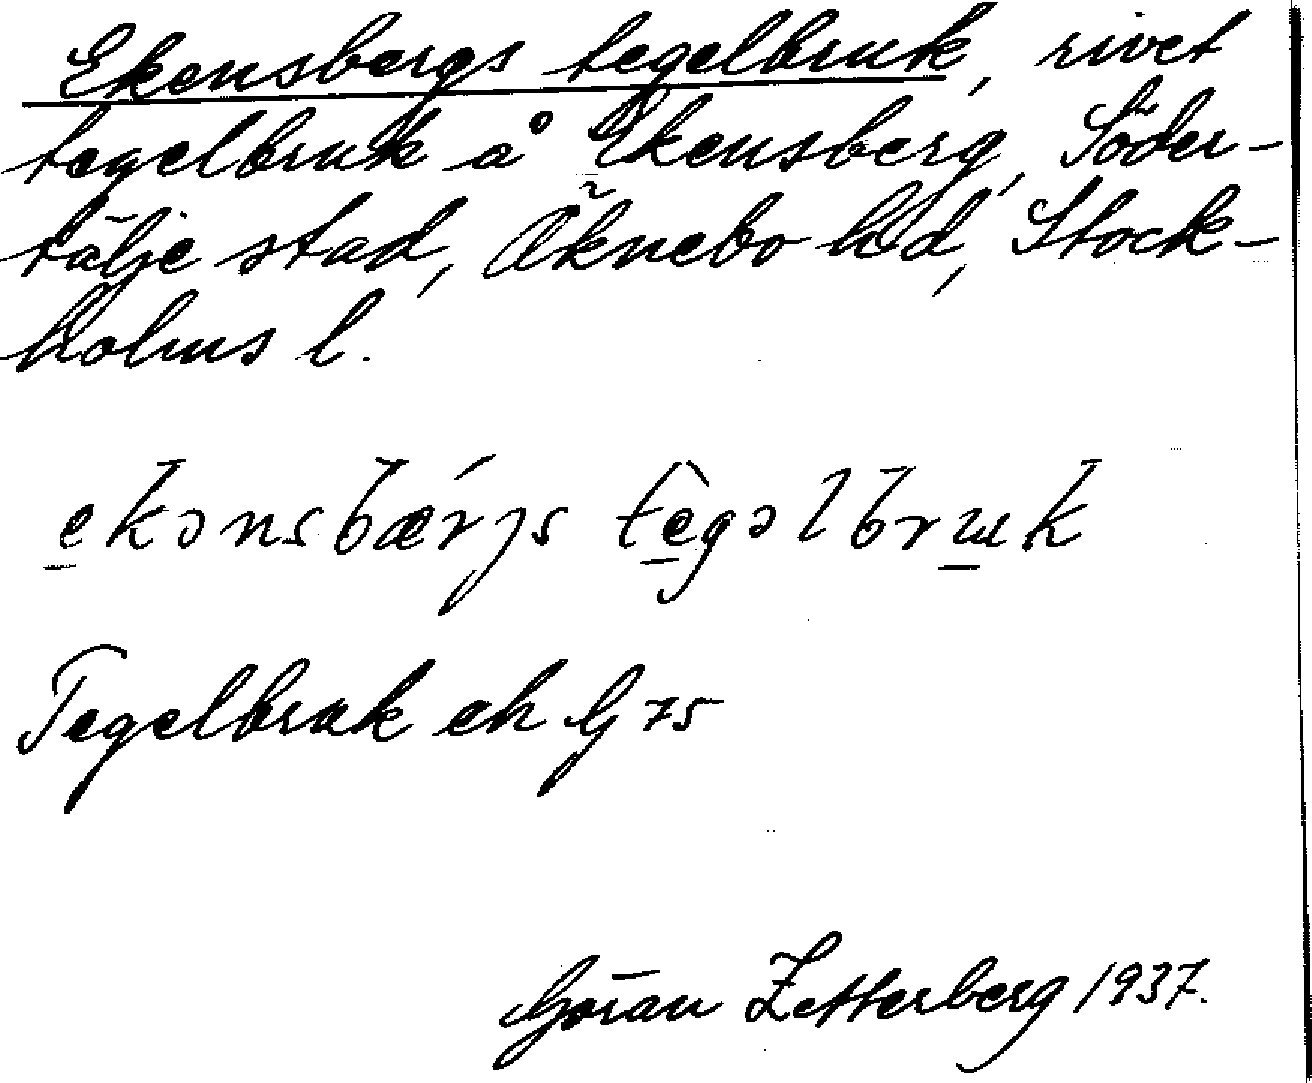 Ekensbergs tegelbruk, rivet
tegelbruk å Ekensberg, Söder-
tälje stad, Öknebo hd, Stock-
holms l.
ekɔnsbærjs tegɔlbruk
Tegelbruk ek G 75
Göran Zetterberg 1937.